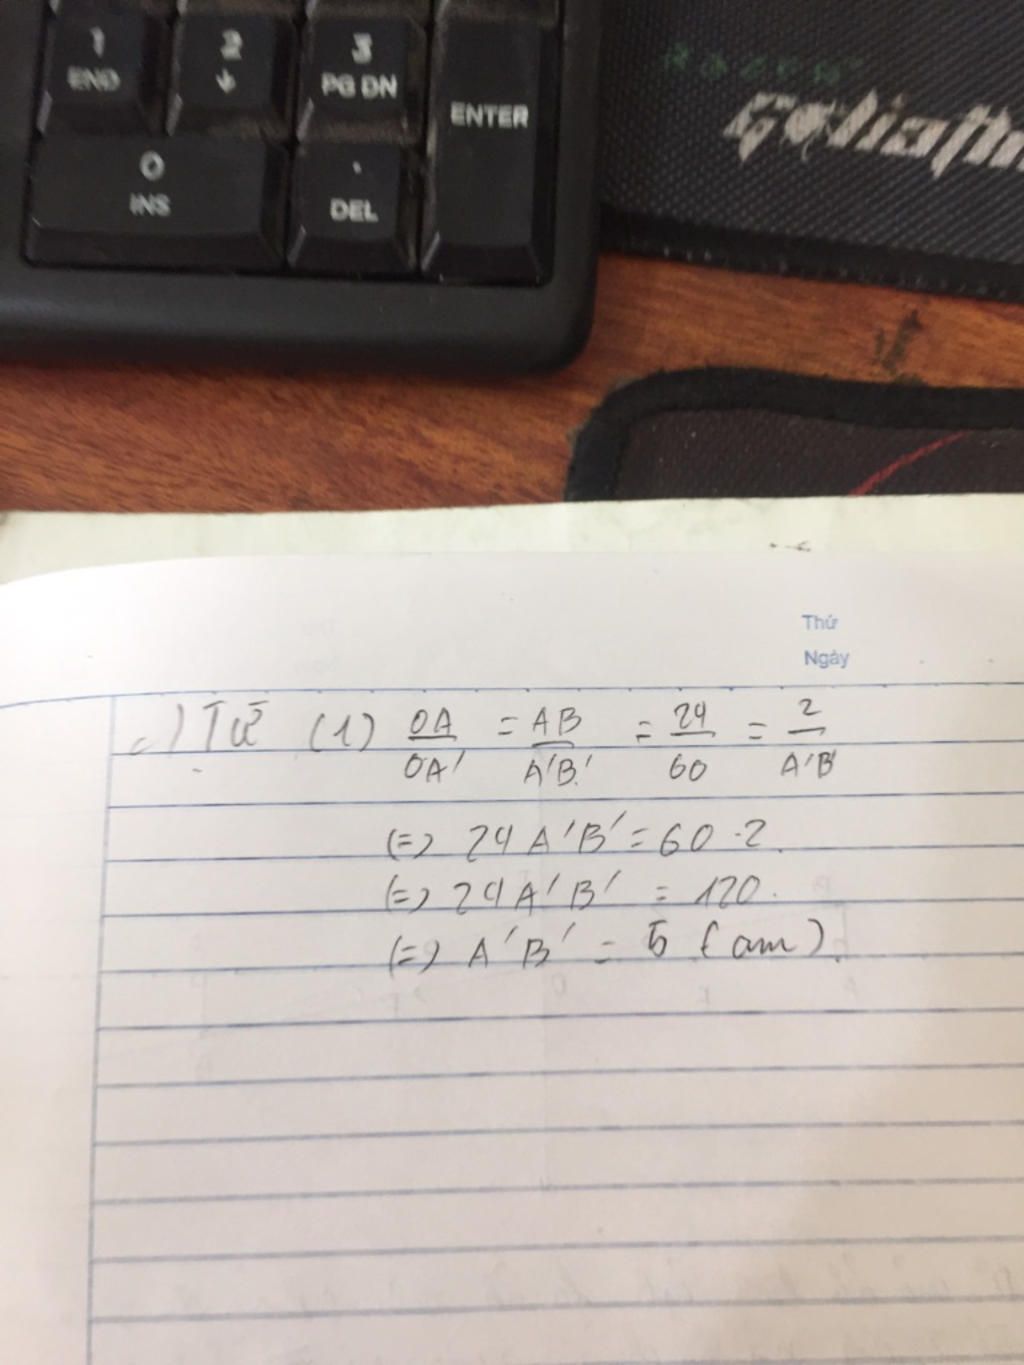 1 2 3
END ↓ PG DN ENTER
0 .
INS DEL
RAZER
Goliath
Thứ
Ngày
c) Từ (1) OA/OA' = AB/A'B' = 24/60 = 2/A'B'
(=) 24 A'B' = 60 . 2.
(=) 24 A'B' = 120.
(=) A'B' = 5 (cm).